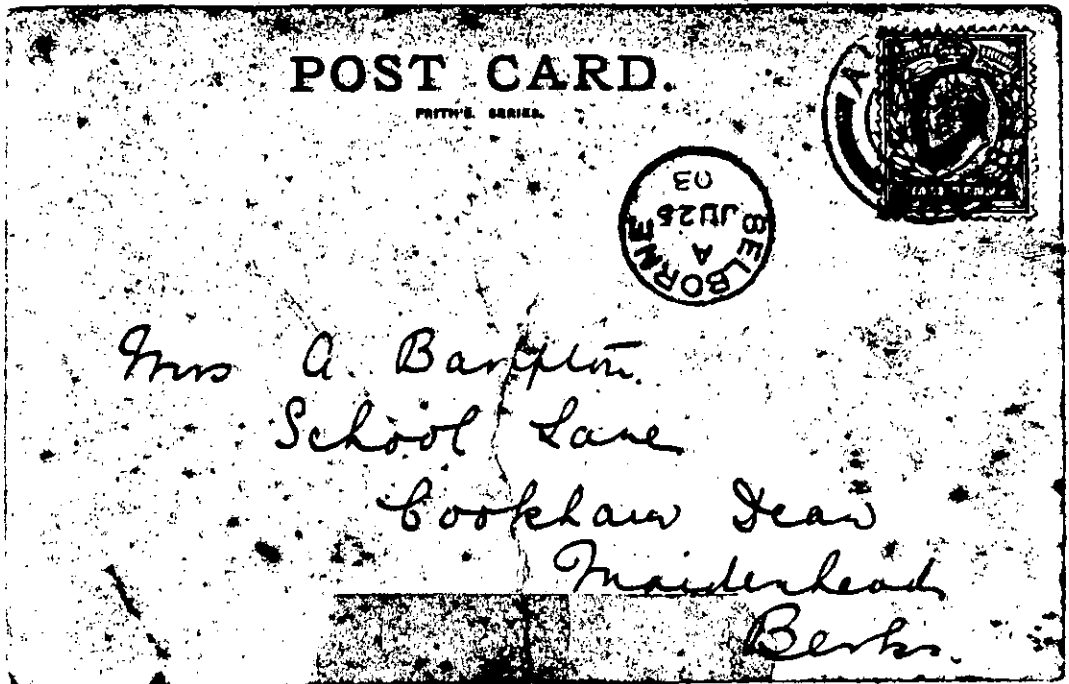 POST CARD.
FRITH'S SERIES.
SELBORNE
A
JU 25
03
Mrs A. Bampton.
School Lane
Cookham Dean
Maidenhead
Berks.